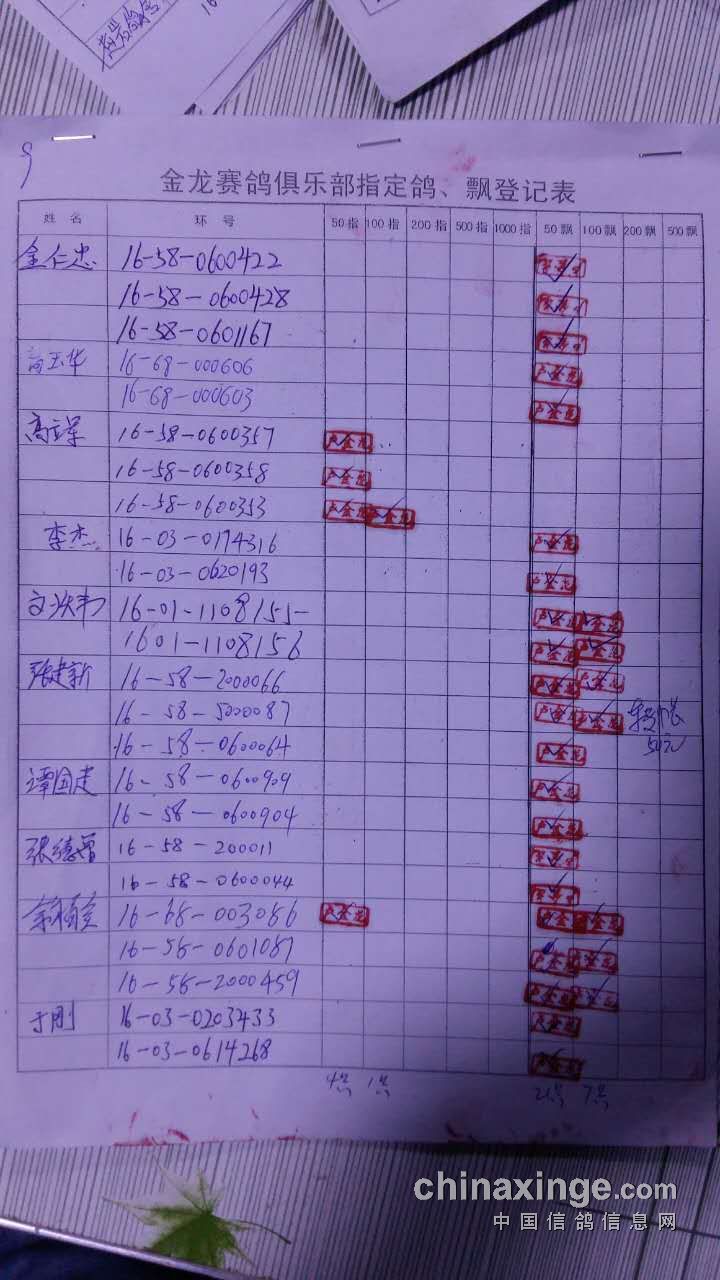 9
金龙赛鸽俱乐部指定鸽、飘登记表
姓名 环号 50指 100指 200指 500指 1000指 50飘 100飘 200飘 500飘
金仁忠 16-58-0600422
16-58-0600428
16-58-0601167
高玉华 16-68-000606
16-68-000603
高立军 16-58-0600357 卢金龙
16-58-0600358 卢金龙
16-58-0600353 卢金龙 卢金龙
李杰 16-03-0174316 卢金龙
16-03-0620193 卢金龙
16-01-1108155- 卢金龙 卢金龙
1601-1108156 卢金龙 卢金龙
张建新 16-58-2000066 卢金龙 卢金龙
16-58-5000087 卢金龙 卢金龙
50元
16-58-0600064 卢金龙
谭国建 16-58-0600909 卢金龙
16-58-0600904 卢金龙
张德曾 16-58-200011
16-58-0600044
16-68-003086 卢金龙 卢金龙 卢金龙
16-58-0601087 卢金龙 卢金龙
16-58-2000459 卢金龙 卢金龙
于刚 16-03-0203433 卢金龙
16-03-0614268 卢金龙
chinaxinge.com
中国信鸽信息网